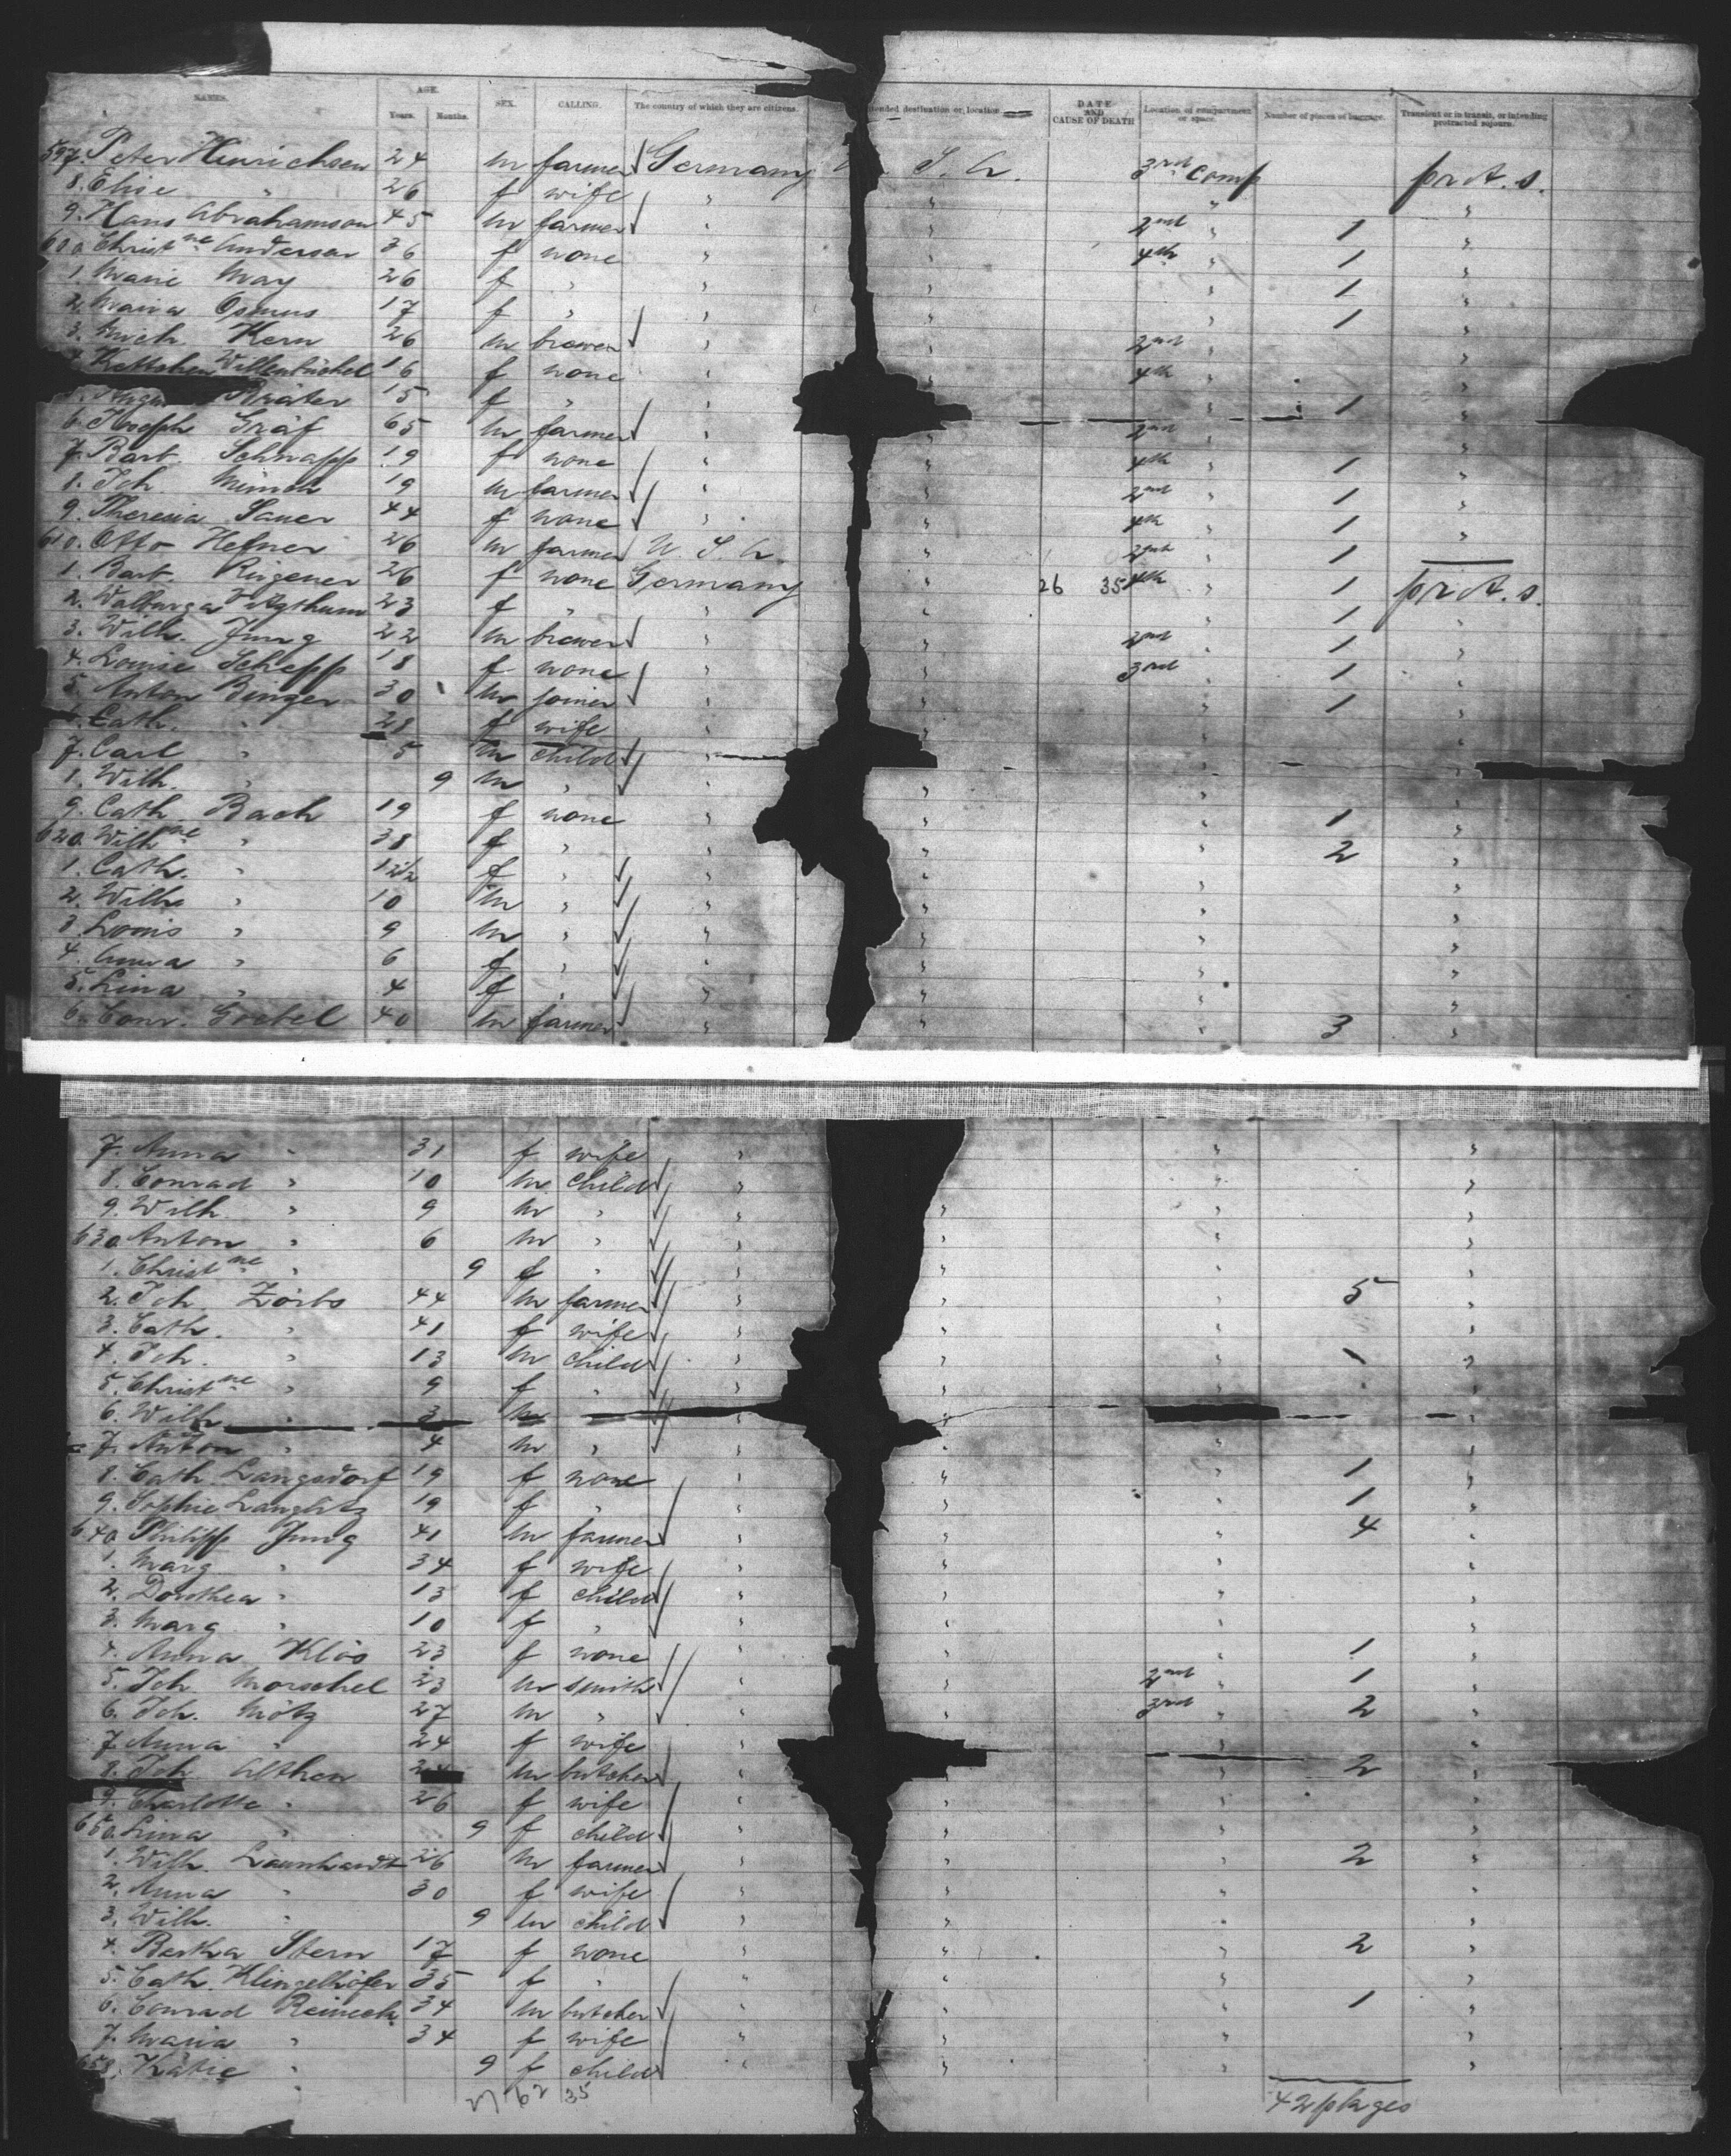 NAMES. AGE. Years. Months. SEX. CALLING. The country of which they are citizens. Intended destination or location DATE AND CAUSE OF DEATH Location of compartment or space. Number of pieces of baggage. Transient or in transit, or intending protracted sojourn.
597. Peter Hinrichsen 24 m farmer Germany U. S. A. 3rd comp pr. A. s.
8. Elise " 26 f wife " " " "
9. Hans Abrahamson 45 m farmer " " 2nd " 1 "
600 Christne Anderson 36 f none " " 4th " 1 "
1. Marie May 26 f " " " " 1 "
2. Maria Osmus 17 f " " " " 1 "
3. Mich. Kern 26 m brewer " " 2nd " "
4. Kettchen Willenbüchel 16 f none " " 4th " "
5. Bräter 15 f " " " " 1 "
6. Joseph Gräf 65 m farmer " " 2nd " "
7. Barb. Schnapp 19 f none " " 4th " 1 "
8. Joh. Münch 19 m farmer " " 2nd " 1 "
9. Theresia Sauer 44 f none " " 4th " 1 "
610. Otto Hefner 26 m farmer U. S. A. " 2nd " 1 —
1. Barb. Ringener 26 f none Germany " 26 35 4th " 1 pr. A. s.
2. Walburga Vitzthum 23 f " " " " 1 "
3. Wilh. Jung 22 m brewer " " 2nd " 1 "
4. Louise Schepp 18 f none " " 3rd " 1 "
5. Anton Binger 30 m joiner " " " 1 "
6. Cath. " 28 f wife " "
7. Carl " 5 m child " " "
8. Wilh. " 9 m " " " " "
9. Cath. Bach 19 f none " " 1 "
620. Wilhne " 38 f " " " " 2 "
1. Cath. " 11 1/2 f " " " " "
2. Wilh. " 10 m " " " " "
3. Louis " 9 m " " " " "
4. Anna " 6 f " " " " "
5. Lina " 4 f " " " " "
6. Conr. Goebel 40 m farmer " " " 3 "
7. Anna " 31 f wife " " "
8. Conrad " 10 m child " " "
9. Wilh. " 9 m " " " " "
630. Anton " 6 m " " " " "
1. Christne " 9 f " " " " "
2. Joh. Zörbs 44 m farmer " " " 5 "
3. Cath. " 41 f wife " " " "
4. Joh. " 13 m child " " " "
5. Christne " 9 f " " " " "
6. Wilh. " 3 m " "
7. Anton " 4 m " " " " "
8. Cath. Langsdorf 19 f none " " " 1 "
9. Sophie Langlitz 19 f " " " " 1 "
640 Philipp Jung 41 m farmer " " " 4 "
1. Marg " 34 f wife " " " "
2. Dorothea " 13 f child " " " "
3. Marg " 10 f " " " " "
4. Anna Klös 23 f none " " " 1 "
5. Joh. Morschel 23 m smith " " 2nd " 1 "
6. Joh. Mötz 27 m " " " 3rd " 2 "
7. Anna " 24 f wife " " "
8. Joh. Althen m butcher " " " 2 "
9. Charlotte " 26 f wife " " " "
650. Lina " 9 f child " " " "
1. Wilh. Launhardt 26 m farmer " " " 2 "
2. Anna " 30 f wife " " " "
3. Wilh. " 9 m child " " " "
4. Bertha Stern 17 f none " " " 2 "
5. Cath. Klingelhöfer 35 f " " " " "
6. Conrad Reineck 34 m butcher " " " 1 "
7. Maria " 34 f wife " " " "
658. Katie " 9 f child " " " "
27 62 35
42 pkages